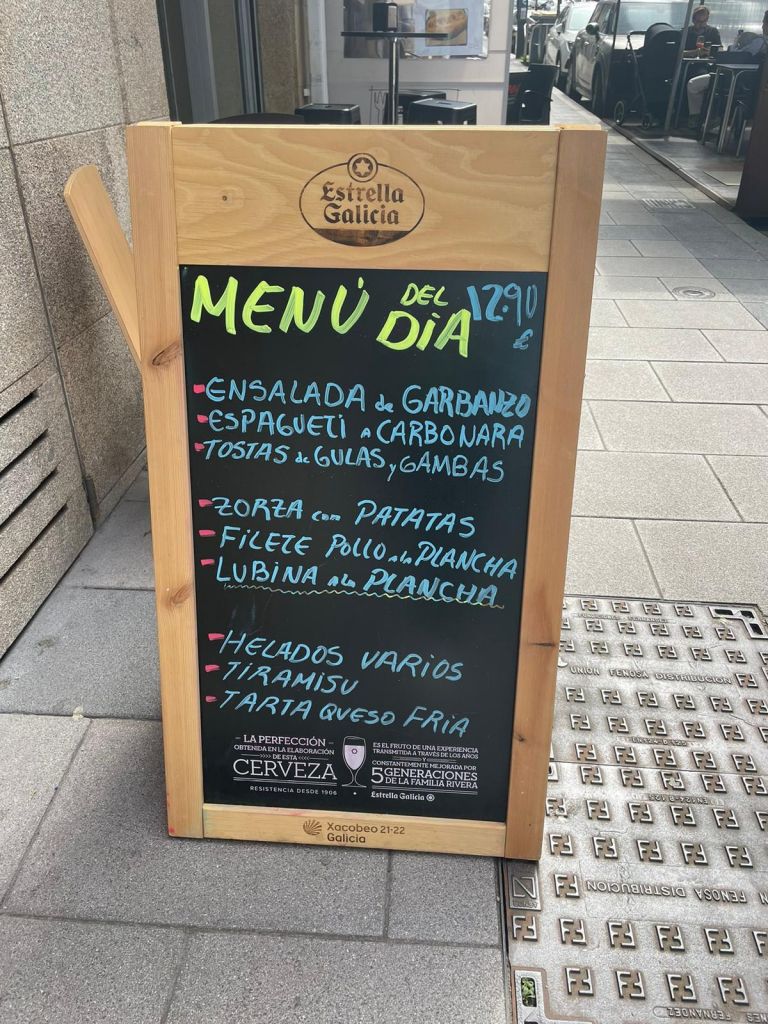 Estrella
Galicia
MENÚ DEL DÍA 12.90 €
ENSALADA de GARBANZO
ESPAGUETI a CARBONARA
TOSTAS de GULAS y GAMBAS
ZORZA con PATATAS
FILETE POLLO a la PLANCHA
LUBINA a la PLANCHA
HELADOS VARIOS
TIRAMISU
TARTA QUESO FRIA
LA PERFECCIÓN
OBTENIDA EN LA ELABORACIÓN
DE ESTA
CERVEZA
RESISTENCIA DESDE 1906
ES EL FRUTO DE UNA EXPERIENCIA
TRANSMITIDA A TRAVÉS DE LOS AÑOS
Y
CONSTANTEMENTE MEJORADA POR
5 GENERACIONES
DE LA FAMILIA RIVERA
Estrella Galicia
Xacobeo 21·22
Galicia
UNION FENOSA DISTRIBUCION
EN-124
FENOSA DISTRIBUCION